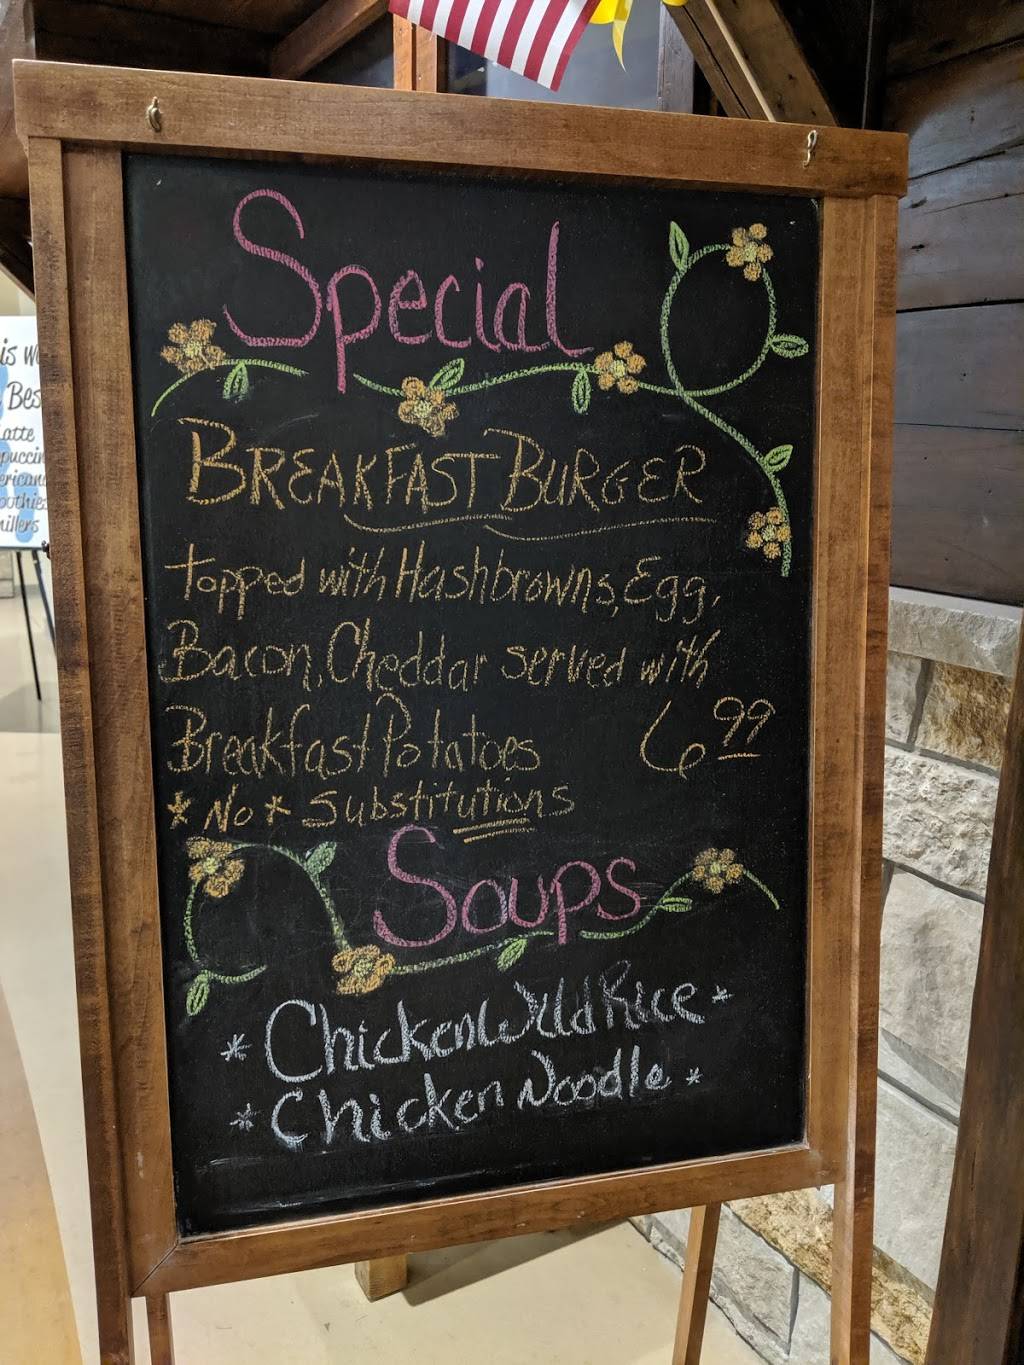 Special
BREAKFAST BURGER
topped with Hashbrowns, Egg,
Bacon, Cheddar served with
Breakfast Potatoes 6 99
*No* Substitutions
Soups
*Chicken Wild Rice*
*Chicken Noodle*
is
Bes
atte